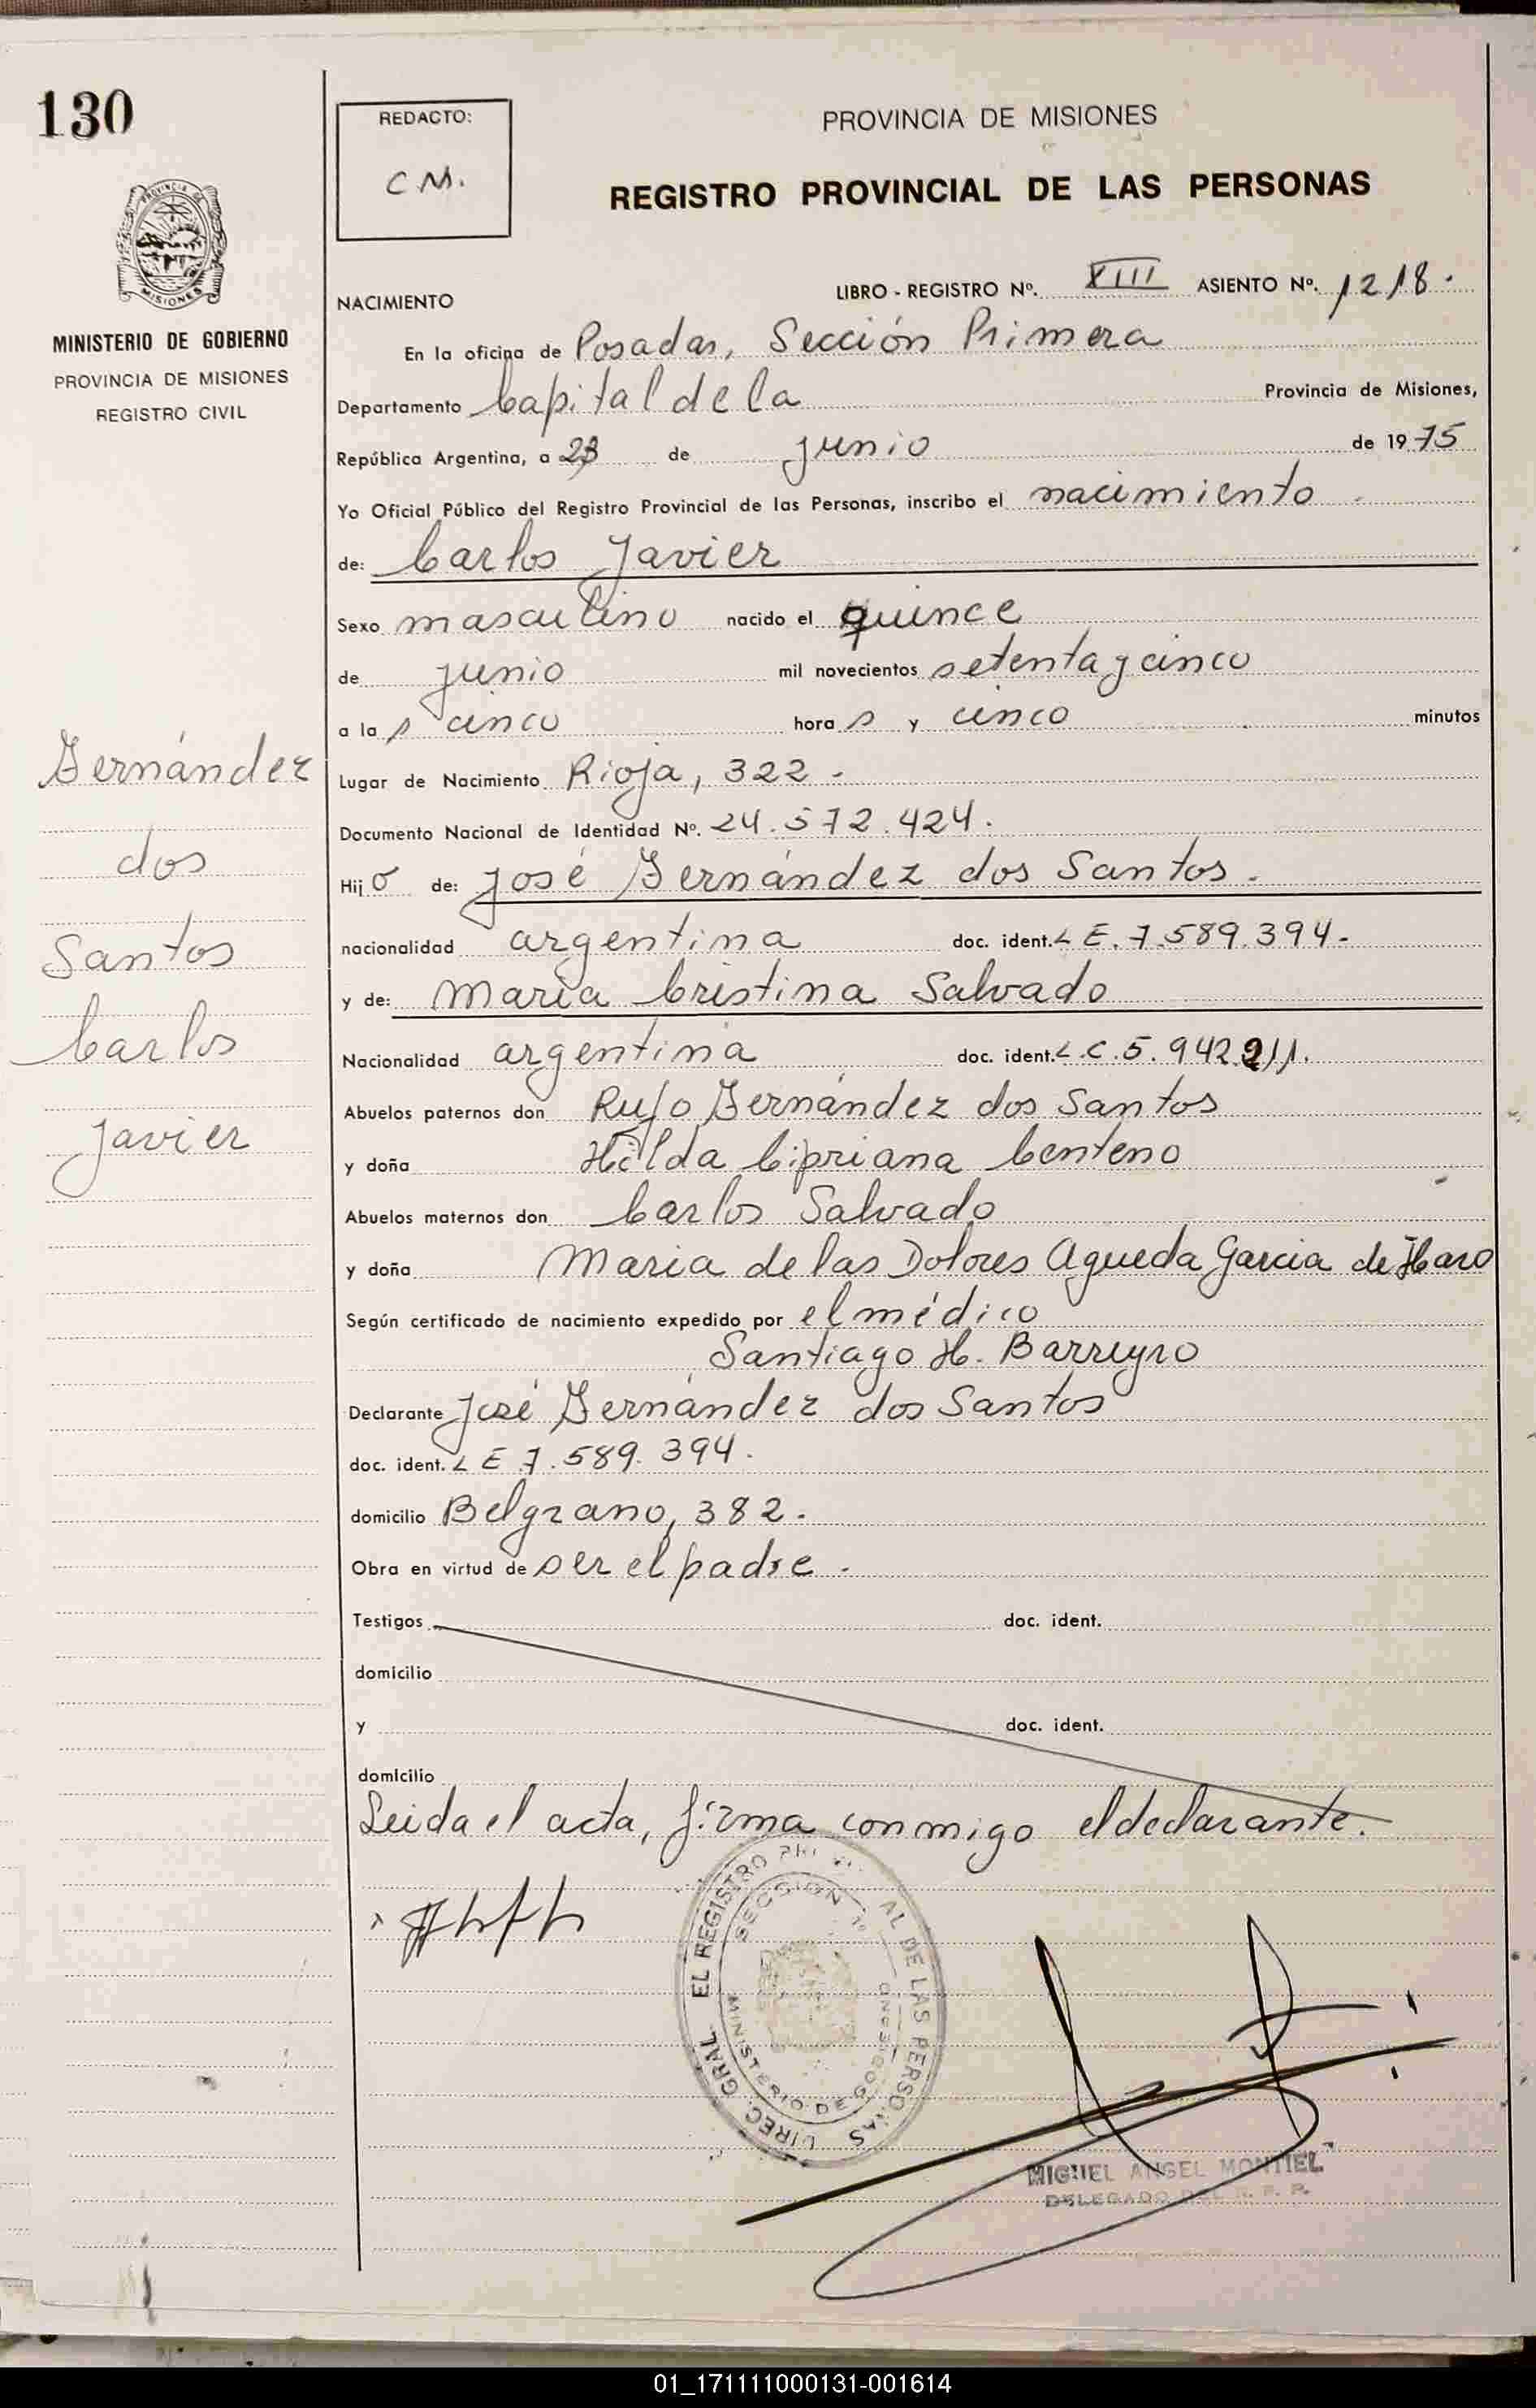 130
REDACTO:
C M.
PROVINCIA DE MISIONES
REGISTRO PROVINCIAL DE LAS PERSONAS
PROVINCIA DE
MISIONES
MINISTERIO DE GOBIERNO
PROVINCIA DE MISIONES
REGISTRO CIVIL
NACIMIENTO
LIBRO - REGISTRO Nº. XIII ASIENTO Nº. 1218.
En la oficina de Posadas, Sección Primera
Departamento Capital de la Provincia de Misiones,
República Argentina, a 23 de junio de 1975
Yo Oficial Público del Registro Provincial de las Personas, inscribo el nacimiento
de: Carlos Javier
Sexo masculino nacido el quince
de junio mil novecientos setenta y cinco
a la s cinco hora s y cinco minutos
Lugar de Nacimiento Rioja, 322.
Documento Nacional de Identidad Nº. 24.572.424.
Hij o de: José Fernández dos Santos.
nacionalidad argentina doc. ident. L E. 7.589.394.
y de: María Cristina Salvado
Nacionalidad argentina doc. ident. L.C. 5.942.211.
Abuelos paternos don Rufo Fernández dos Santos
y doña Hilda Cipriana Centeno
Abuelos maternos don Carlos Salvado
y doña Maria de las Dolores Agueda Garcia de Haro
Según certificado de nacimiento expedido por el médico
Santiago H. Barreyro
Declarante José Fernández dos Santos
doc. ident. L E 7.589.394.
domicilio Belgrano, 382.
Obra en virtud de ser el padre.
Testigos doc. ident.
domicilio
y doc. ident.
domicilio
Leida el acta, firma conmigo el declarante.
Fernández
dos
Santos
Carlos
Javier
DIREC. GRAL. EL REGISTRO AL DE LAS PERSONAS
SECCION 1º
MINISTERIO DE GOBIERNO
MIGUEL ANGEL MONTIEL
DELEGADO DEL R. P. P.
01_171111000131-001614